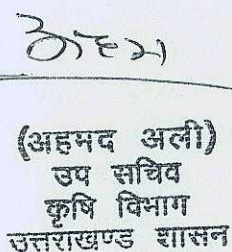 (अहमद अली)
उप सचिव
कृषि विभाग
उत्तराखण्ड शासन